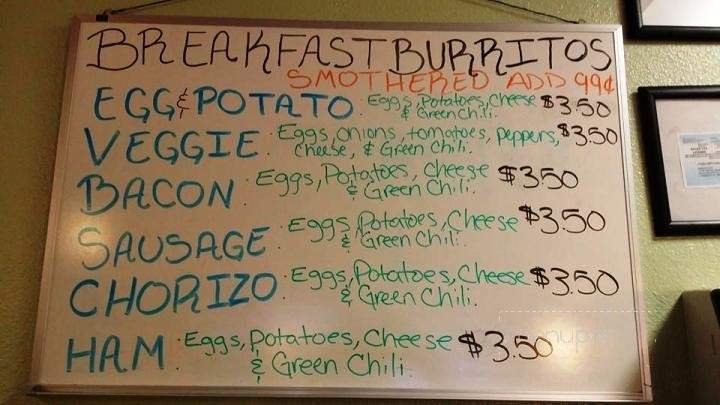 BREAKFAST BURRITOS
SMOTHERED ADD 99¢
EGG & POTATO. Eggs, Potatoes, Cheese $3.50
& Green Chili.
VEGGIE. Eggs, onions, tomatoes, peppers, $3.50
Cheese, & Green Chili.
BACON. Eggs, Potatoes, Cheese $3.50
& Green Chili.
SAUSAGE. Eggs, Potatoes, Cheese $3.50
& Green Chili.
CHORIZO. Eggs, Potatoes, Cheese $3.50
& Green Chili.
HAM. Eggs, Potatoes, Cheese $3.50
& Green Chili.